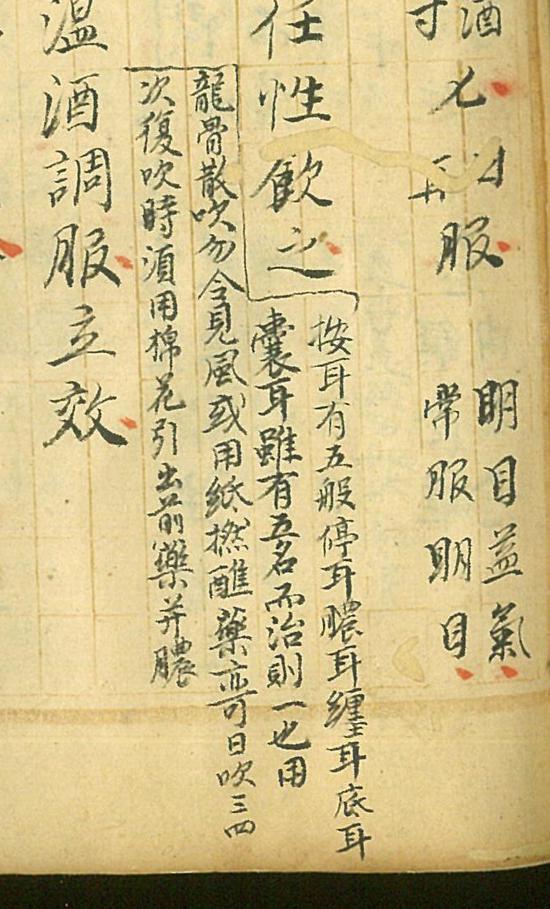 酒
寸匕
再服
明目益氣
常服明目
任性飲之
按耳有五般停耳膿耳纏耳底耳
囊耳雖有五名而治則一也用
龍骨散吹勿令見風或用紙撚醮藥亦可日吹三四
次復吹時須用棉花引出前藥并膿
溫酒調服立效